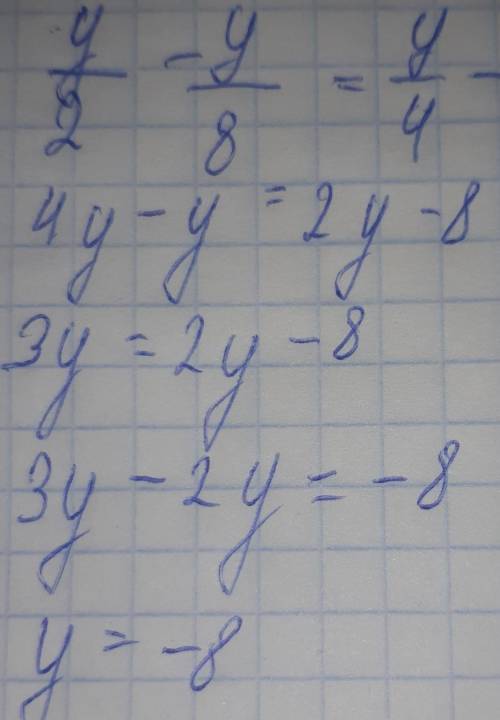 y/2 - y/8 = y/4 -
4y - y = 2y - 8
3y = 2y - 8
3y - 2y = - 8
y = - 8